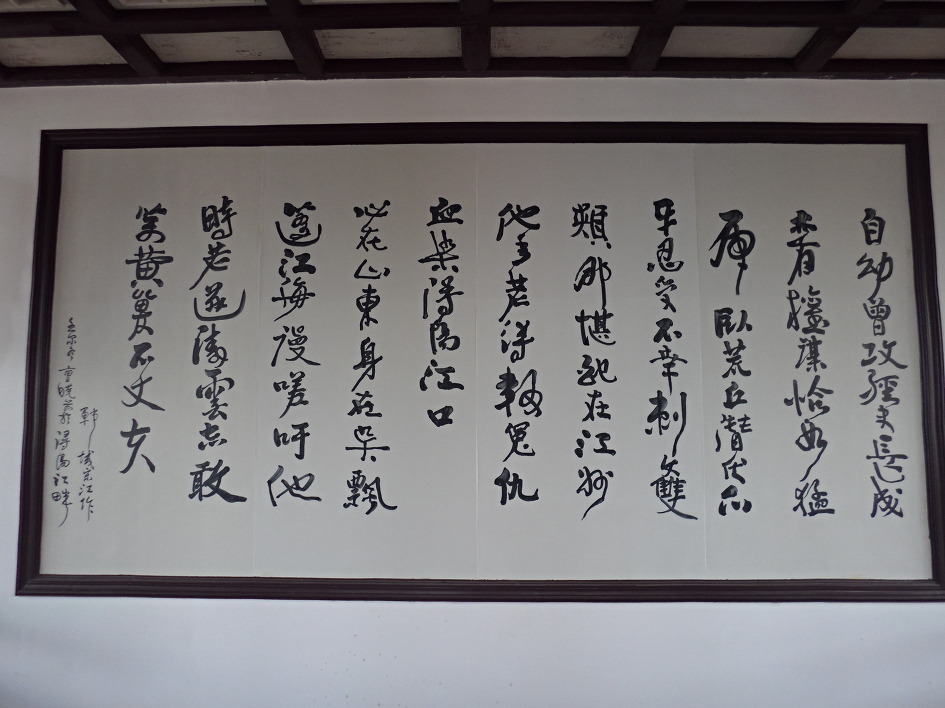 自幼曾攻經史長成
亦有權謀恰如猛
虎卧荒丘潛伏爪
牙忍受不幸刺雙
頰那堪配在江州
他年若得報冤仇
血染潯陽江口
心在山東身在吳飄
蓬江海謾嗟吁他
時若遂凌雲志敢
笑黃巢不丈夫
城宋江作
潯陽江畔